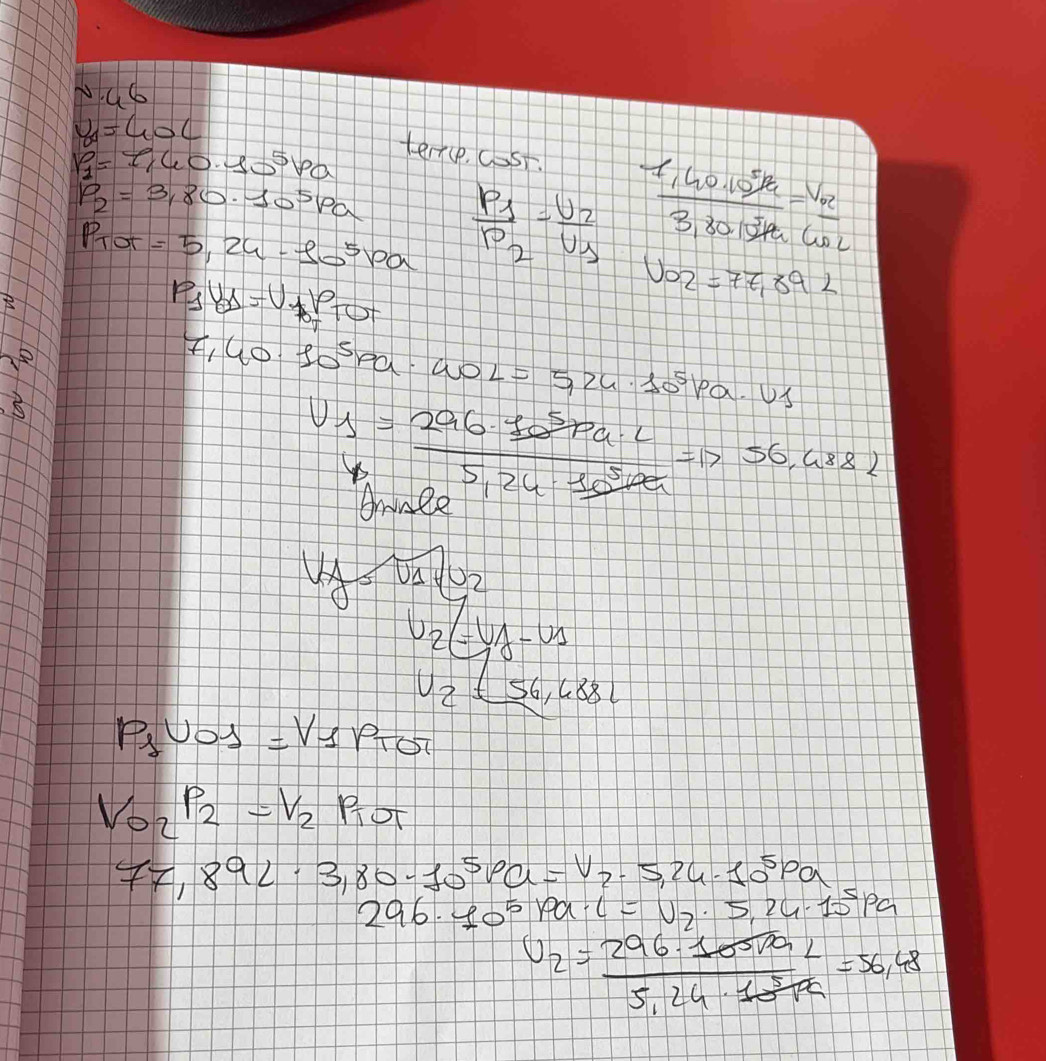 N.46
V1=40L
P1= 7,40.10^5 Pa
P2= 3,80.10^5 Pa
PTOT= 5,24.10^5 Pa
temp. cost.
P1/P2 = V2/V1
7,40.10^5 Pa / 3,80.10^5 Pa = V02 / 40L
V02 = 77,89 L
P1 V01 = V1 PTOT
7,40.10^5 Pa . 40L = 5,24.10^5 Pa. V1
V1 = 296.10^5 Pa.L / 5,24.10^5 Pa => 56,488 L
Vf = V1+V2
V2 = Vf - V1
V2 = 56,488 L
P1 V01 = V1 PTOT
V02 P2 = V2 PTOT
77,89L . 3,80.10^5 Pa = V2. 5,24.10^5 Pa
296.10^5 Pa.L = V2. 5,24.10^5 Pa
V2 = 296.10^5 Pa L / 5,24.10^5 Pa = 56,48